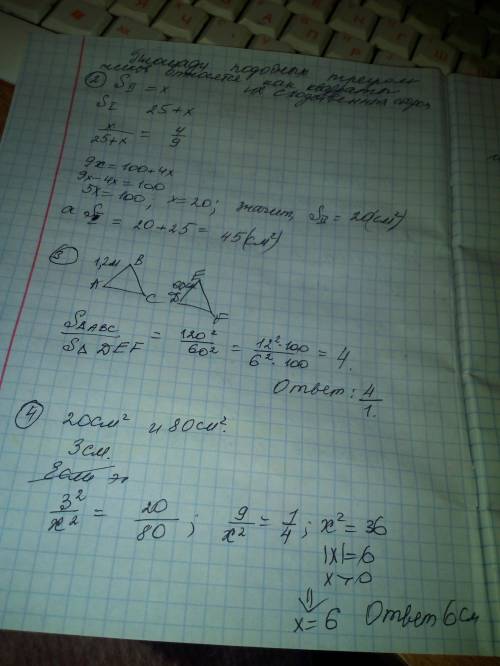 Площади подобных треуголь
ников относятся как квадраты
их сходственных сторон
② S_II = x
S_I 25+x
x/(25+x) = 4/9
9x = 100+4x
9x-4x=100
5x=100, x=20; значит, S_II = 20(см²)
а S_I = 20+25= 45(см²)
③
1,2м B
A C
E
60см D
F
S△ABC/S△DEF = 120²/60² = 12²·100/6²·100 = 4.
Ответ: 4/1.
④ 20см² и 80см².
3см.
3²/x² = 20/80; 9/x² = 1/4; x² = 36
|x|=6
x>0
⇓
x=6 Ответ 6см